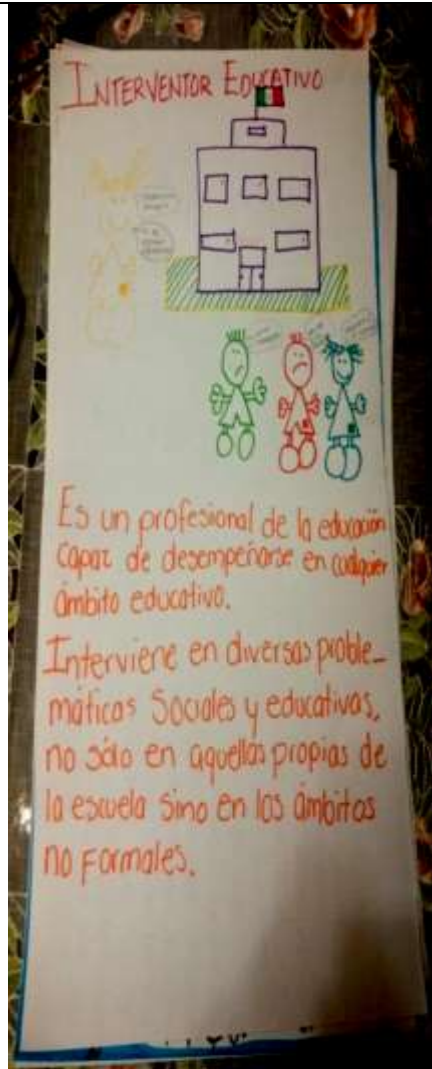 INTERVENTOR EDUCATIVO
Es un profesional de la educación
capaz de desempeñarse en cualquier
ámbito educativo.
Interviene en diversas proble-
máticas Sociales y educativas,
no sólo en aquellas propias de
la escuela sino en los ámbitos
no formales.